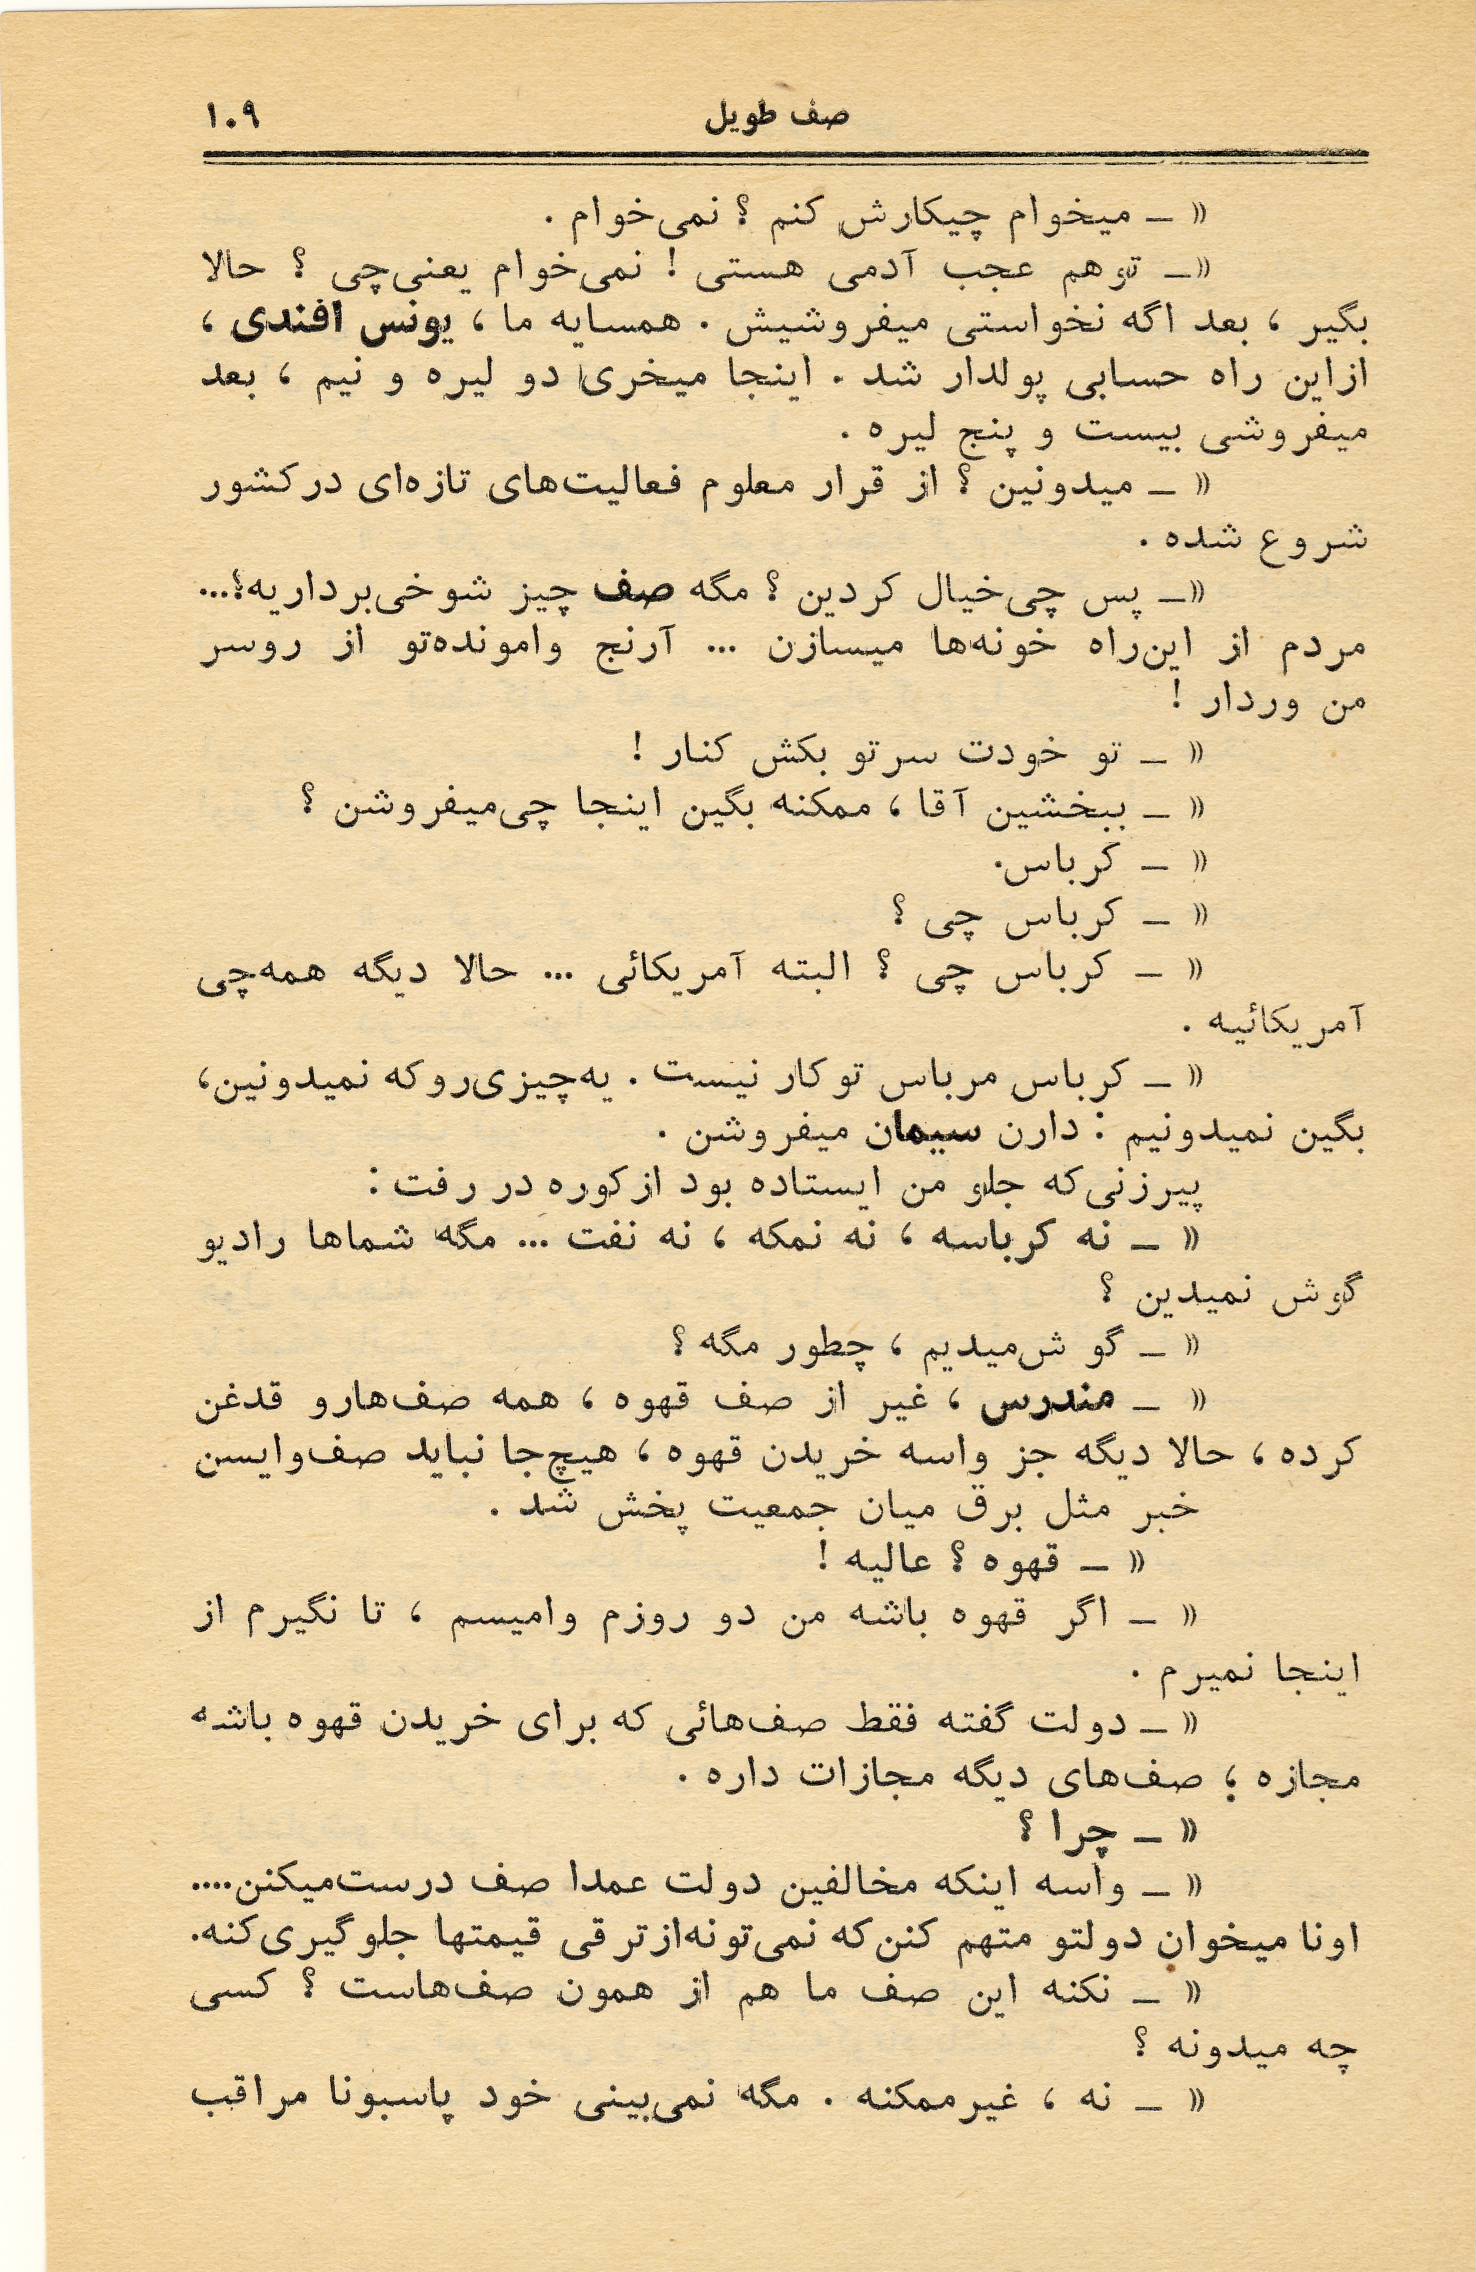 صف طویل ۱۰۹
« ـ میخوام چیکارش کنم ؟ نمی‌خوام .
«ـ توهم عجب آدمی هستی ! نمی‌خوام یعنی‌چی ؟ حالا
بگیر ، بعد اگه نخواستی میفروشیش . همسایه ما ، یونس افندی ،
ازاین راه حسابی پولدار شد . اینجا میخری دو لیره و نیم ، بعد
میفروشی بیست و پنج لیره .
« ـ میدونین ؟ از قرار معلوم فعالیت‌های تازه‌ای درکشور
شروع شده .
«ـ پس چی‌خیال کردین ؟ مگه صف چیز شوخی‌برداریه؟...
مردم از این‌راه خونه‌ها میسازن ... آرنج وامونده‌تو از روسر
من وردار !
« ـ تو خودت سرتو بکش کنار !
« ـ ببخشین آقا ، ممکنه بگین اینجا چی‌میفروشن ؟
« ـ کرباس.
« ـ کرباس چی ؟
« ـ کرباس چی ؟ البته آمریکائی ... حالا دیگه همه‌چی
آمریکائیه .
« ـ کرباس مرباس توکار نیست . یه‌چیزی‌روکه نمیدونین،
بگین نمیدونیم : دارن سیمان میفروشن .
پیرزنی‌که جلو من ایستاده بود ازکوره در رفت :
« ـ نه کرباسه ، نه نمکه ، نه نفت ... مگه شماها رادیو
گوش نمیدین ؟
« ـ گو ش‌میدیم ، چطور مگه ؟
« ـ مندرس ، غیر از صف قهوه ، همه صف‌هارو قدغن
کرده ، حالا دیگه جز واسه خریدن قهوه ، هیچ‌جا نباید صف‌وایسن
خبر مثل برق میان جمعیت پخش شد .
« ـ قهوه ؟ عالیه !
« ـ اگر قهوه باشه من دو روزم وامیسم ، تا نگیرم از
اینجا نمیرم .
« ـ دولت گفته فقط صف‌هائی که برای خریدن قهوه باشه
مجازه ؛ صف‌های دیگه مجازات داره .
« ـ چرا ؟
« ـ واسه اینکه مخالفین دولت عمدا صف درست‌میکنن....
اونا میخوان دولتو متهم کنن‌که نمی‌تونه‌ازترقی قیمتها جلوگیری‌کنه.
« ـ نکنه این صف ما هم از همون صف‌هاست ؟ کسی
چه میدونه ؟
« ـ نه ، غیرممکنه . مگه نمی‌بینی خود پاسبونا مراقب